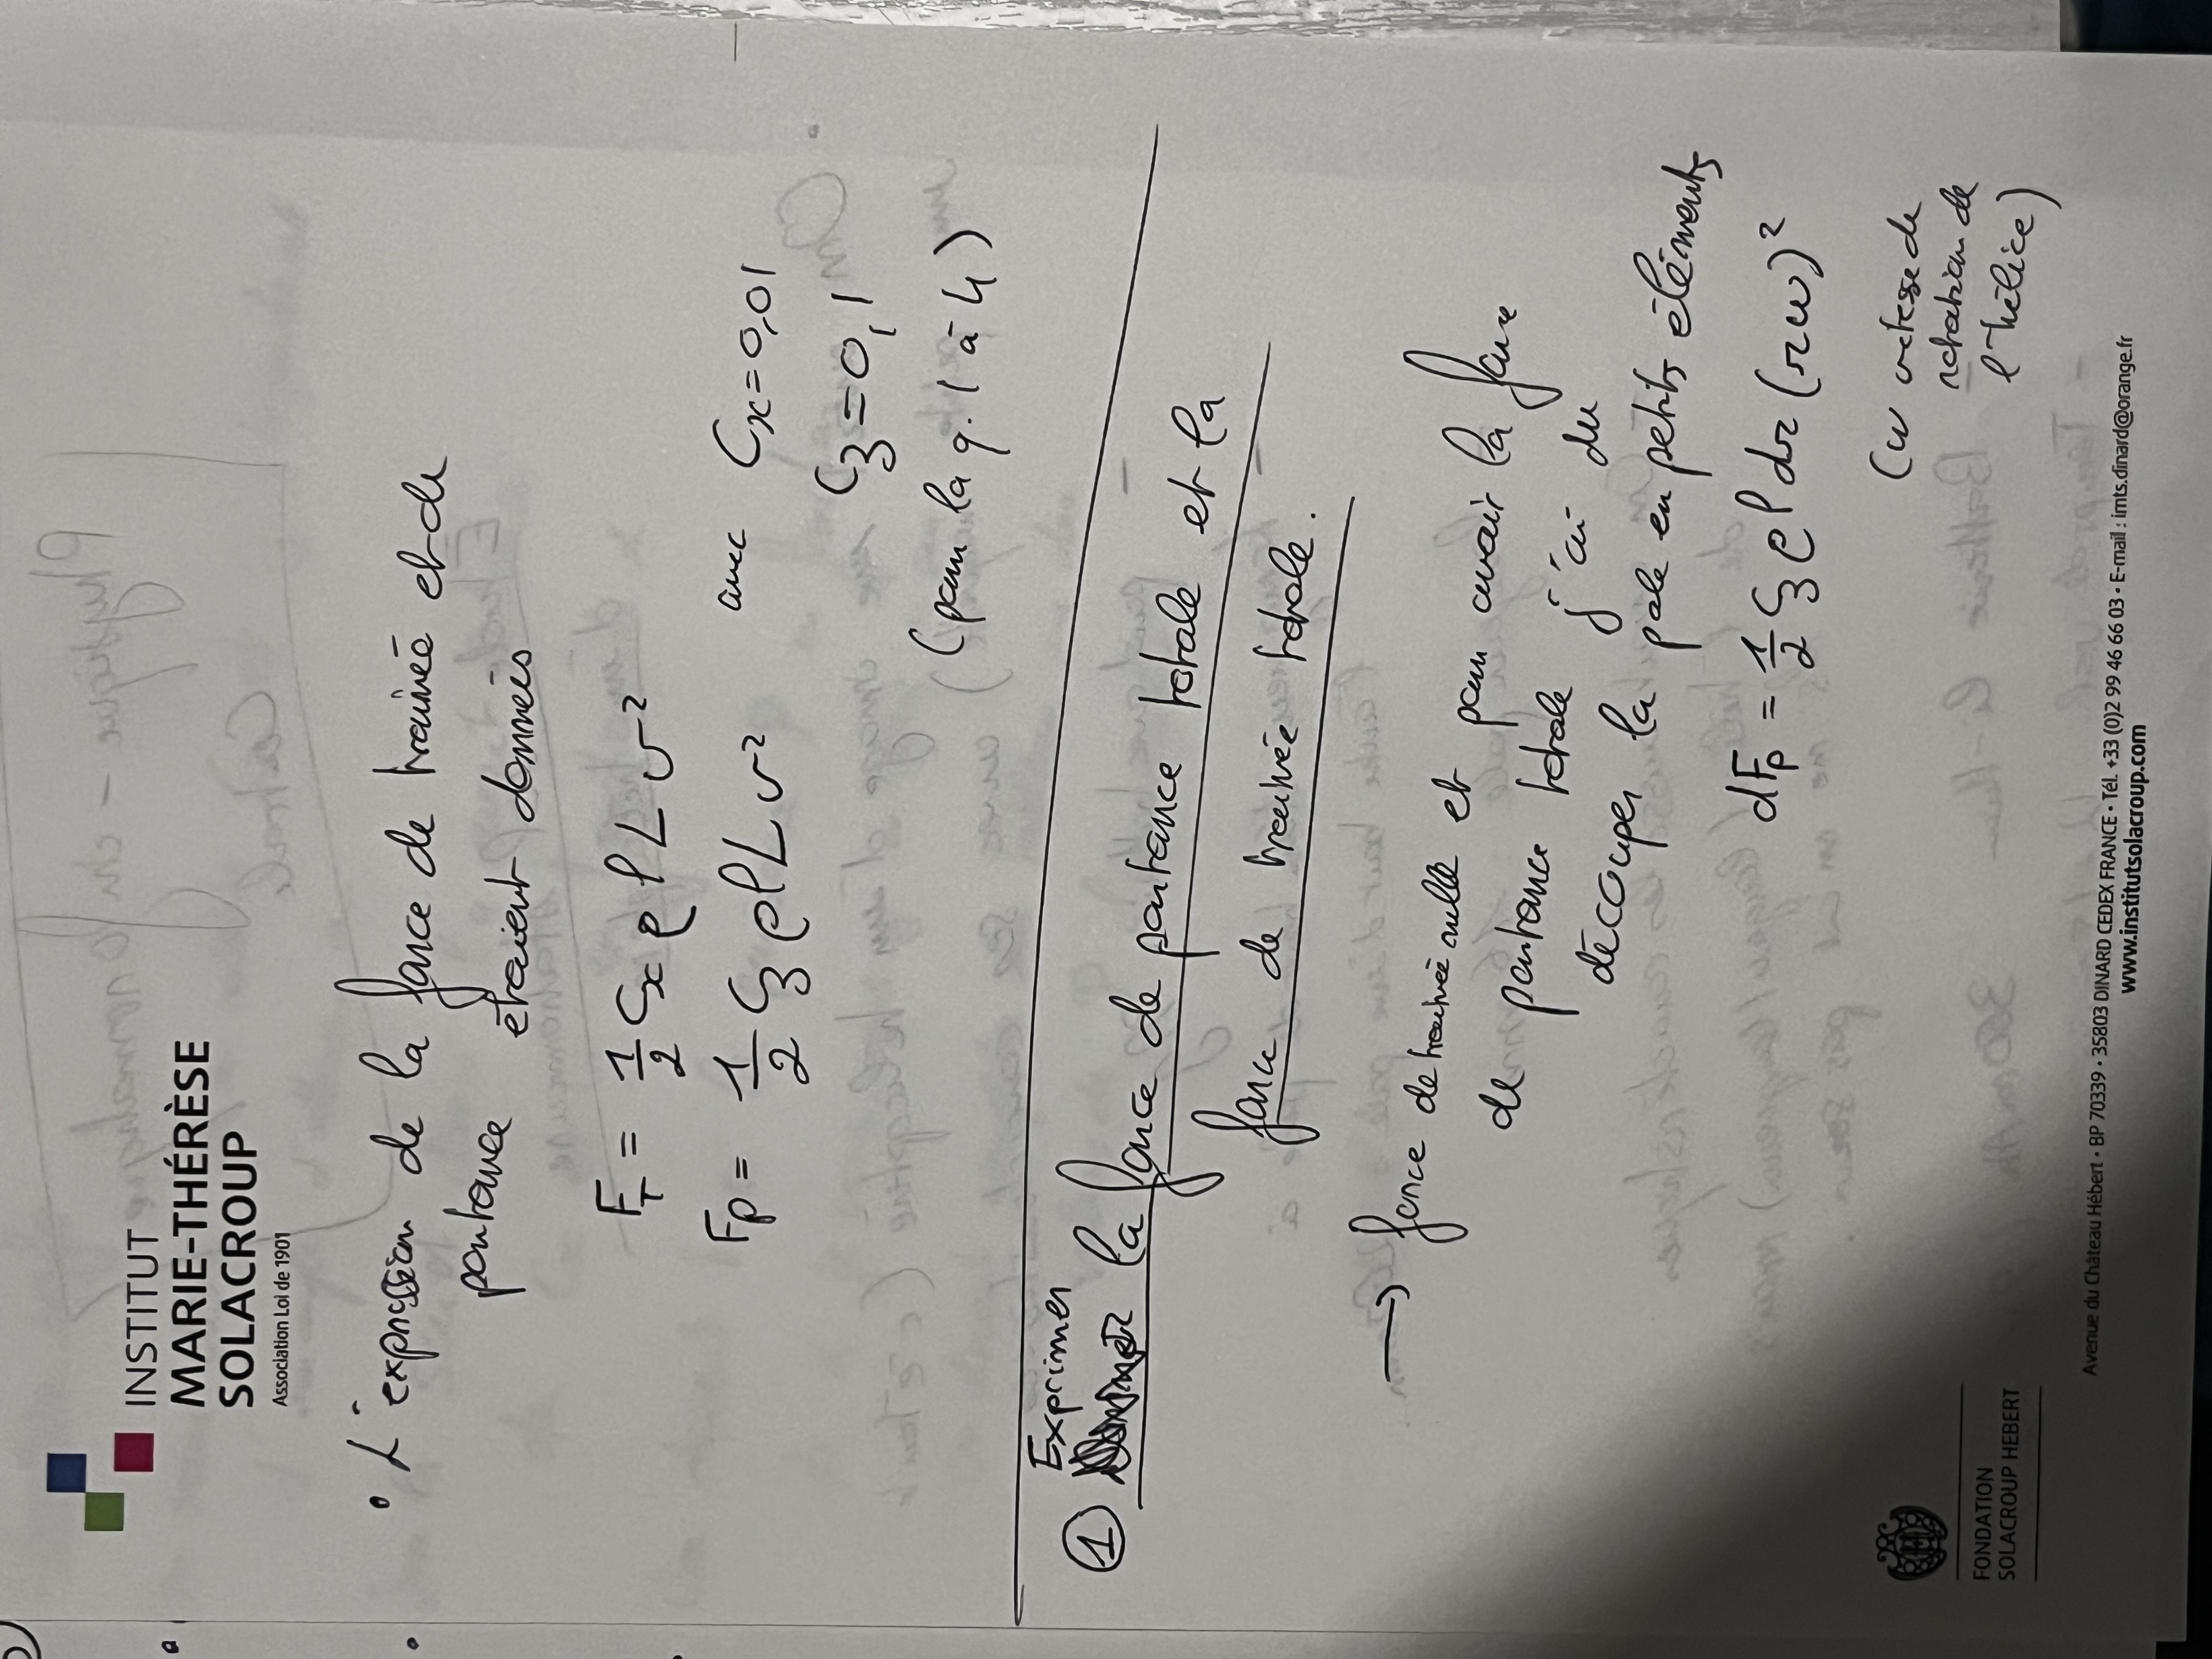 INSTITUT
MARIE-THÉRÈSE
SOLACROUP
Association Loi de 1901
• L'expression de la force de trainée et de
portance étaient données
F_T = 1/2 Cx ρ l L v²
F_P = 1/2 Cz ρ l L v² avec Cx = 0,01
Cz = 0,1
(pour la q. 1 à 4)
Exprimer
① la force de portance totale et la
force de trainée totale.
→ force de trainée nulle et pour avoir la force
de portance totale j'ai du
découper la pale en petits éléments
dF_P = 1/2 Cz ρ l dr (rω)²
(ω vitesse de
rotation de
l'hélice)
FONDATION
SOLACROUP HEBERT
Avenue du Château Hébert • BP 70339 • 35803 DINARD CEDEX FRANCE • Tél. +33 (0)2 99 46 66 03 • E-mail : imts.dinard@orange.fr
www.institutsolacroup.com